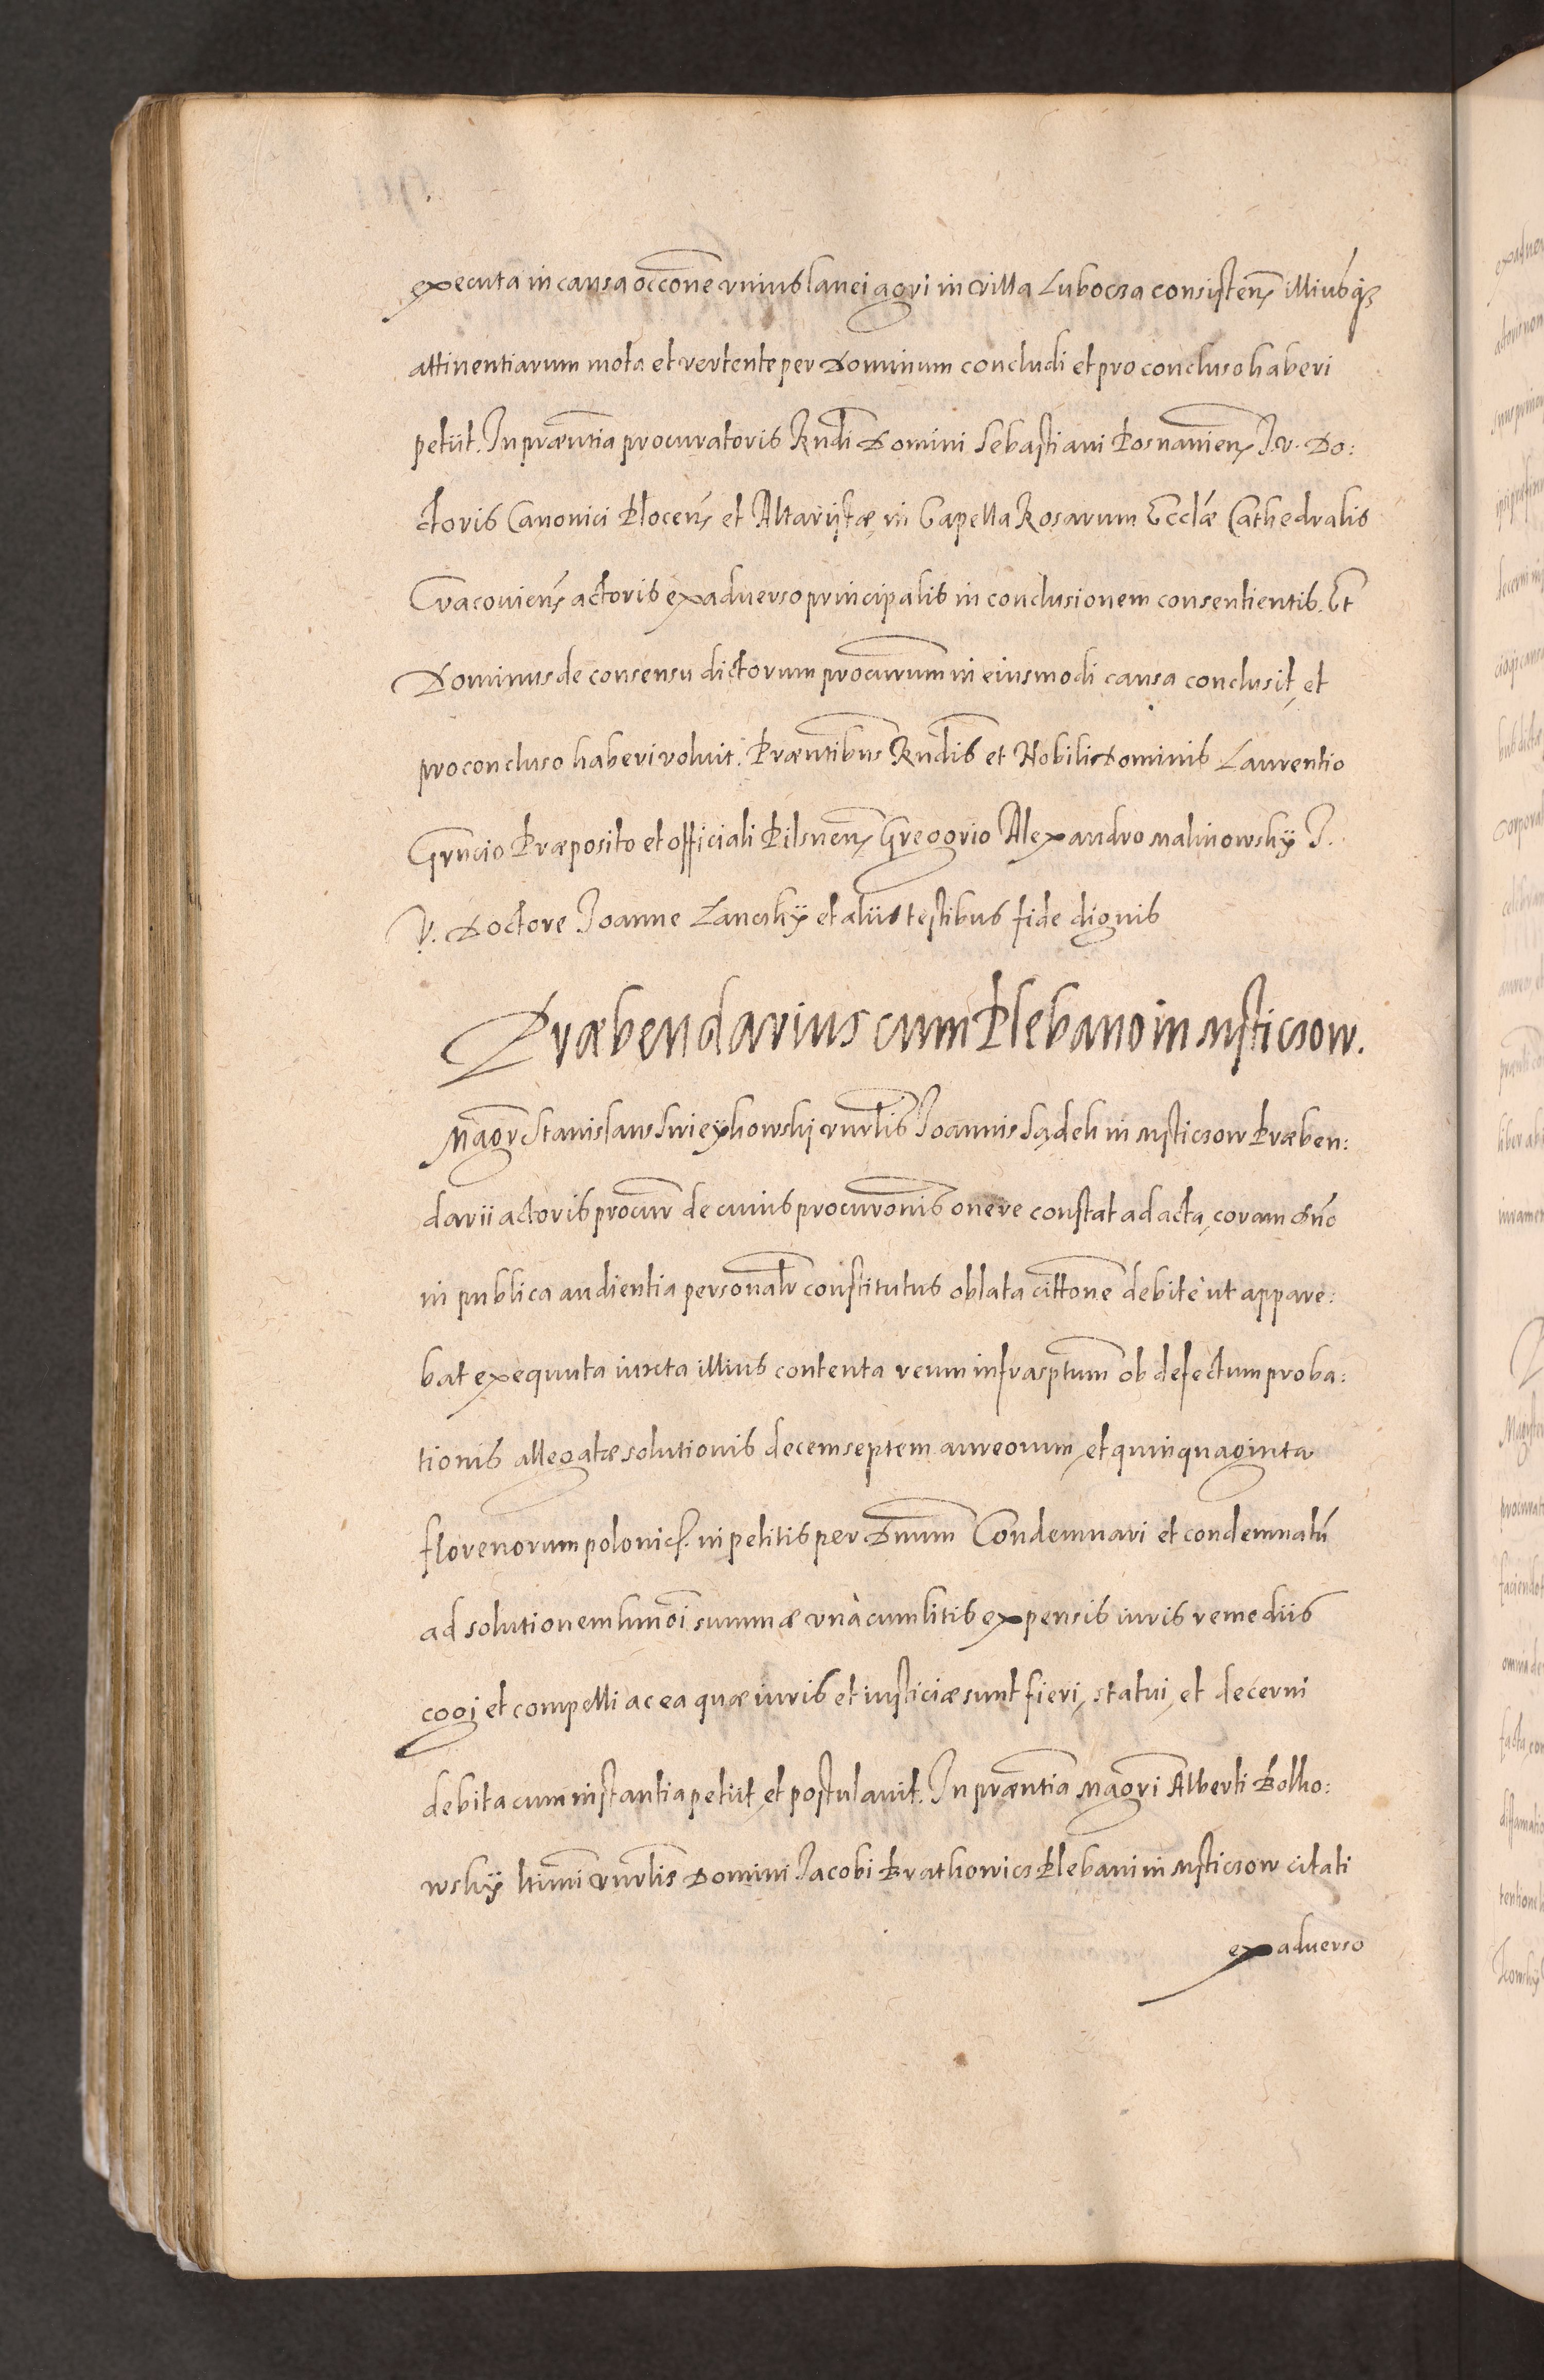 executa in causa occone̅ unius lanei agri in villa Luboczа consisten̅ illiusq̨
attinentiarum mota et vertente per Dominum concludi et pro concluso haberi
petiit. In præn̅tia procuratoris Rndi̅ Domini Sebastiani Posnanien̅ I. V. Do:
ctoris Canonici Plocen̅ et Altaristæ in Capella Rosarum Eccl̅æ Cathedralis
Cracovien̅ actoris ex adverso principalis in conclusionem consentientis. Et
Dominus de consensu dictorum procurum̅ in eiusmodi causa conclusit, et
pro concluso haberi voluit. Præntibus̅ Rndis̅ et Nobili Dominis Laurentio
Præposito et officiali Pilsnen̅ Gregorio Alexandro Malinowsky I.
V. Doctore Joanne Lanczky et aliis testibus fide dignis
Præbendarius cum Plebano in Msticzow.
Magr̅ Stanislaus Swieykowski vnrlis̅ Joannis Sądek in Msticzow Præben:
darii actoris procur̅ de cuius procuronis̅ onere constat ad acta, coram dn̅o
in publica audientia personalr̅ constitutus oblata cittone̅ debitè ut appare:
bat exequuta iuxta illius contenta reum infrasptum̅ ob defectum proba:
tionis allegatæ solutionis decemseptem aureorum, et quinquaginta
florenorum polonic̅. in petitis per Dnum̅ Condemnari et condemnatu̅
ad solutionem hmoi̅ summæ unà cum litis expensis iuris remediis
cogi et compelli ac ea quæ iuris et iusticiæ sunt fieri, statui, et decerni
debita cum instantia petiit, et postulavit. In præntia̅ Magri̅ Alberti Bolko:
wsky ltimi̅ vnrlis̅ Domini Jacobi Brathowicz Plebani in Msticzow citati
ex adverso